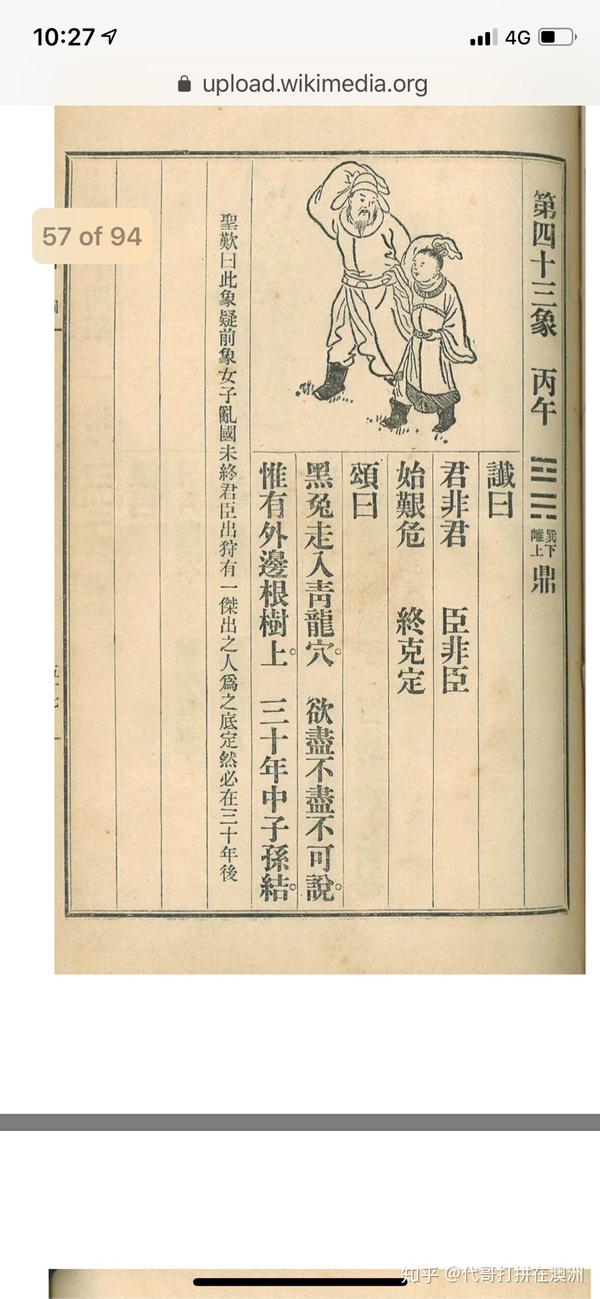 10:27
4G
upload.wikimedia.org
57 of 94
第四十三象 丙午 巽下離上 鼎
讖曰
君非君 臣非臣
始艱危 終克定
頌曰
黑兔走入青龍穴。 欲盡不盡不可說。
惟有外邊根樹上。 三十年中子孫結。
聖歎曰此象疑前象女子亂國未終君臣出狩有一傑出之人爲之底定然必在三十年後
知乎 @代哥打拼在澳洲